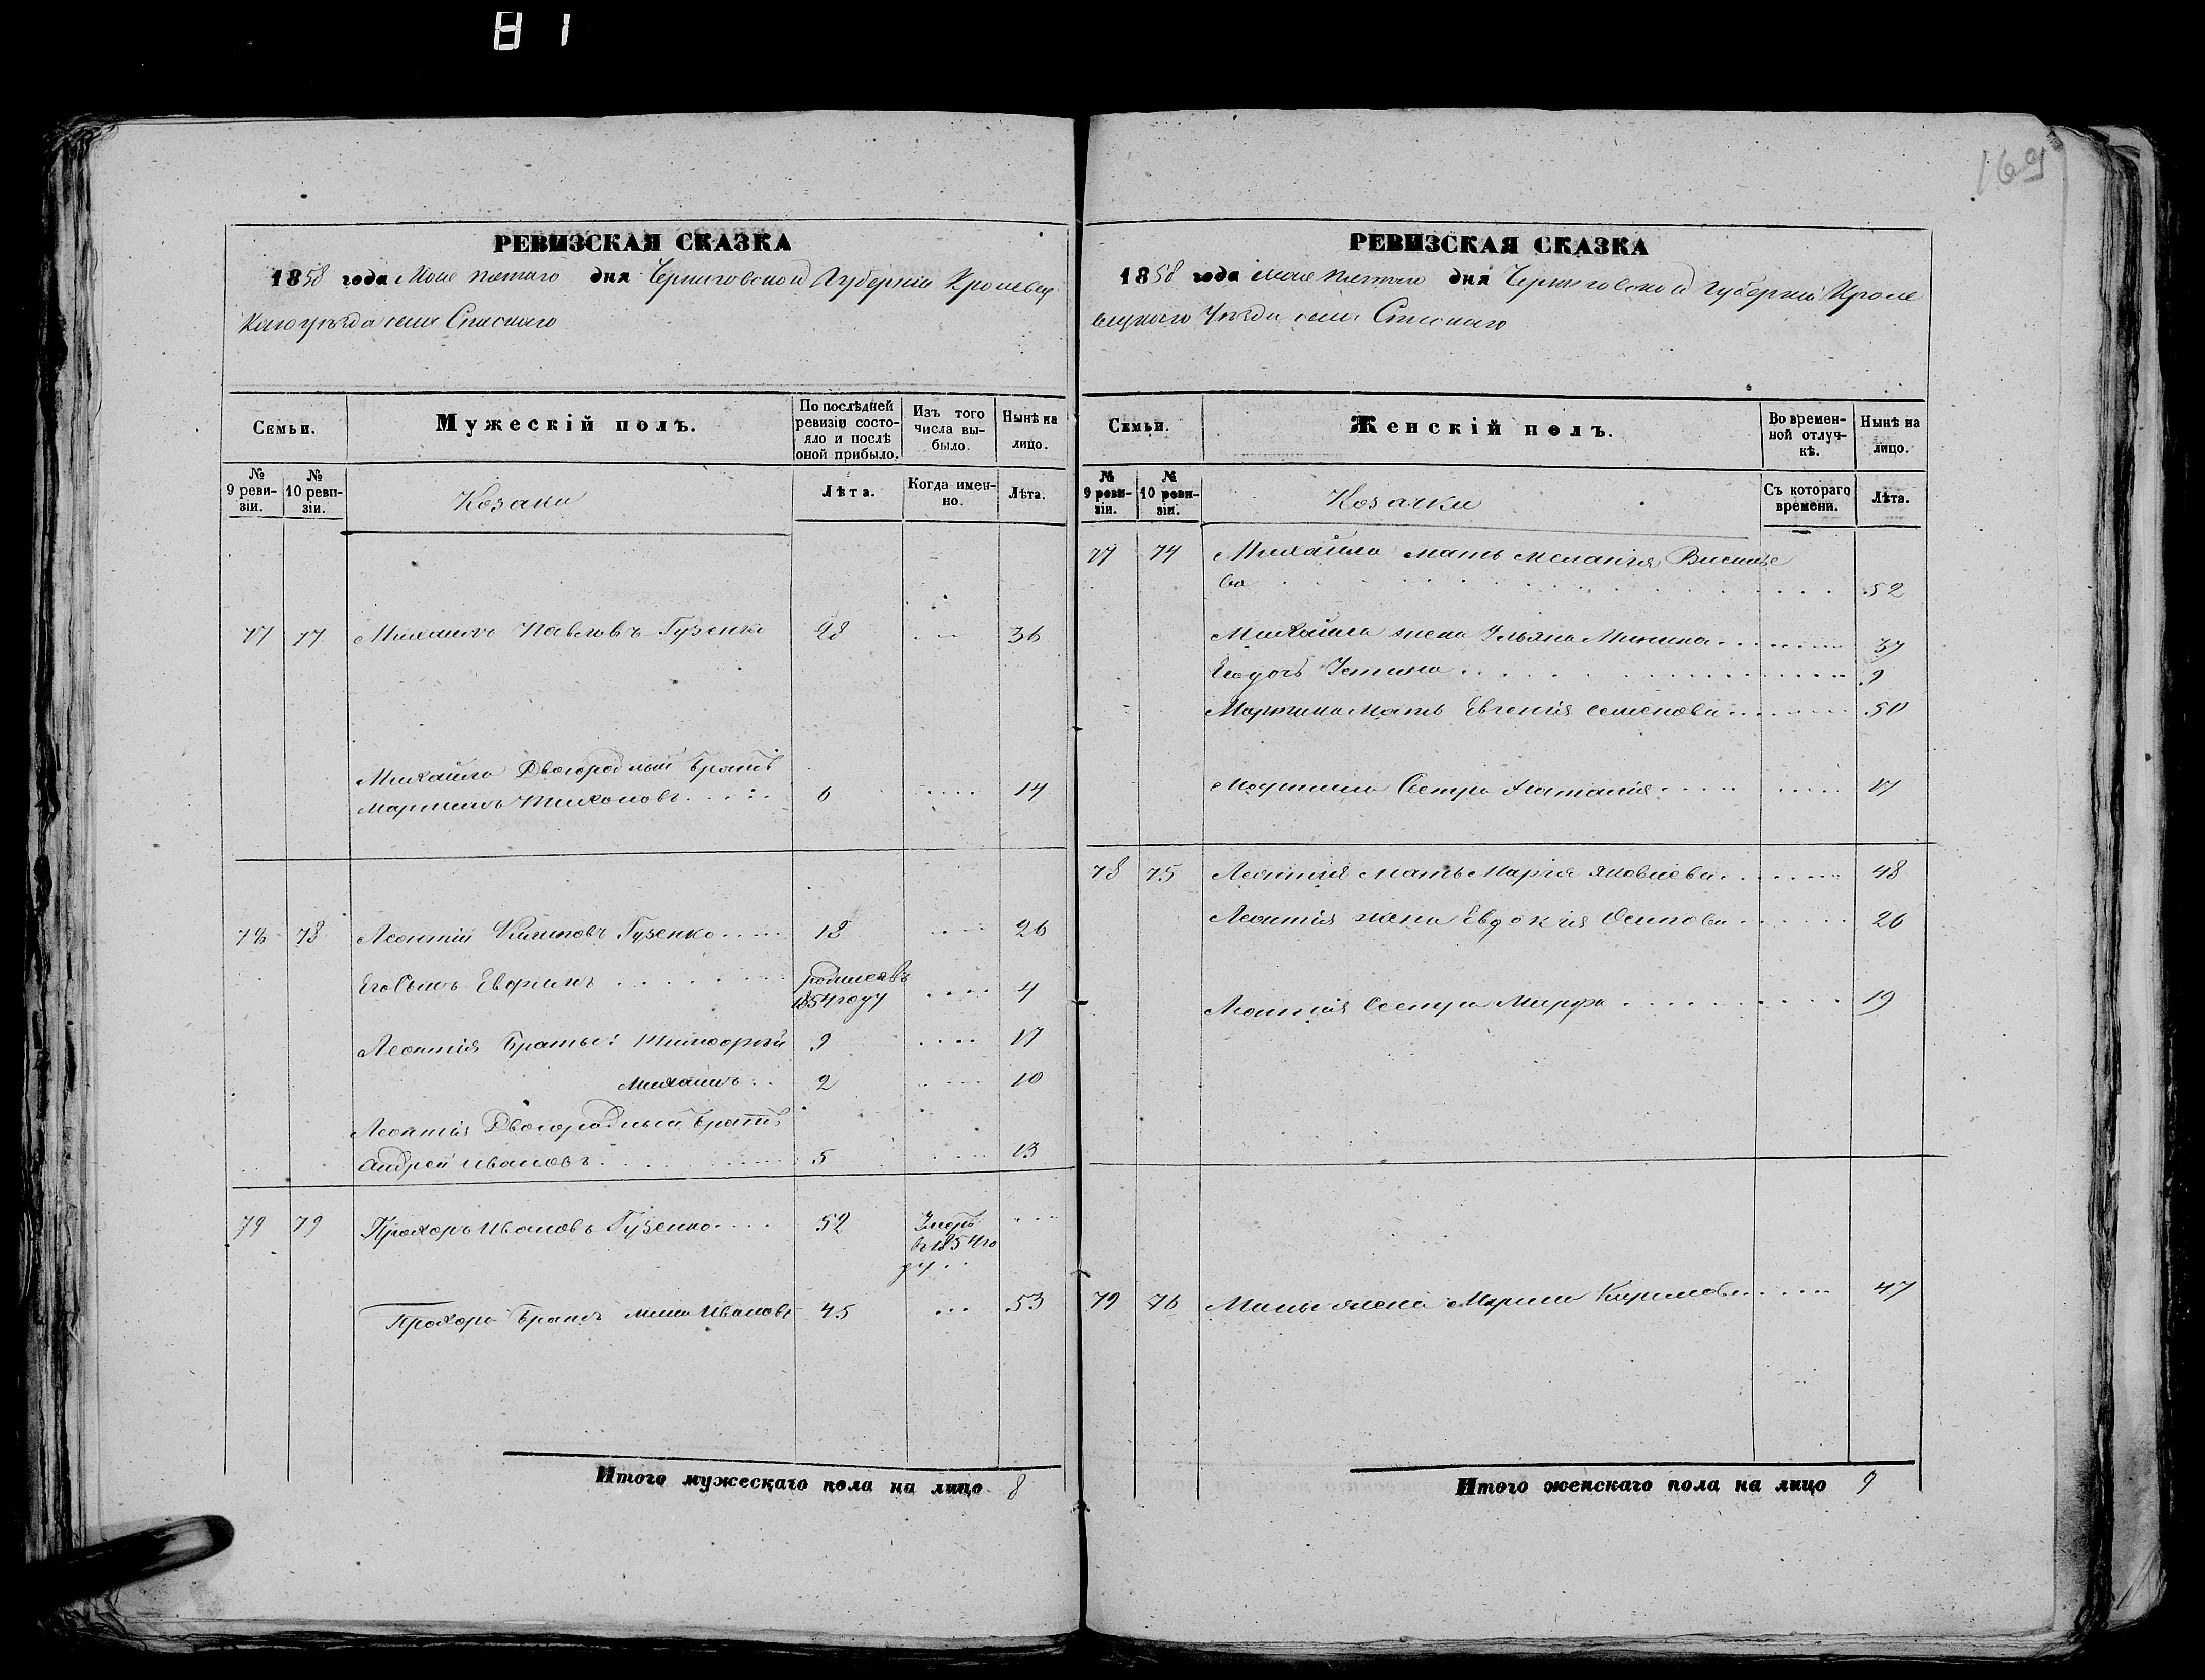 81
169
РЕВИЗСКАЯ СКАЗКА
1858 года Мая пятаго дня Черниговской Губерніи Кролевец
каго уѣзда села Спаскаго
Семьи.
Мужескій полъ.
По послѣдней ревизіи состо-
яло и послѣ
оной прибыло.
Изъ того
числа вы-
было.
Нынѣ на
лицо.
№
9 реви-
зіи.
№
10 реви-
зіи.
Козаки
Лѣта.
Когда имен-
но.
Лѣта.
77 77 Михаилъ Павловъ Гузенко 28 36
Михайла Двоюродный братъ
Мартинъ Тихоновъ 6 14
78 78 Леонтій Филиповъ Гузенко 18 26
Его Сынъ Евфимъ родился въ
1854 году 4
Леонтія Братья: Тимофей 9 17
Михаилъ 2 10
Леонтія Двоюродный братъ
Андрей Ивановъ 5 13
79 79 Прохоръ Ивановъ Гузенко 52 Умеръ
въ 1854 го
ду
Прохора Братъ Мина Ивановъ 45 53
Итого мужескаго пола на лицо 8
РЕВИЗСКАЯ СКАЗКА
1858 года мая пятаго дня Черниговской Губерніи Кроле
вецкаго Уѣзда села Спаскаго
Семьи.
Женскій полъ.
Во времен-
ной отлуч-
кѣ.
Нынѣ на
лицо.
№
9 реви-
зіи.
№
10 реви-
зіи.
Козачки
Съ котораго
времени.
Лѣта.
77 74 Михайла мать Меланія Василье
ва 52
Михайла жена Ульяна Минина 37
Его дочь Устина 9
Мартина Мать Евгенія Семенова 50
Мартина Сестра Наталія 17
78 75 Леонтія Мать Марія Яковлева 48
Леонтія жена Евдокія Осипова 26
Леонтія Сестра Марфа 19
79 76 Мины жена Марина Кирилова 47
Итого женскаго пола на лицо 9